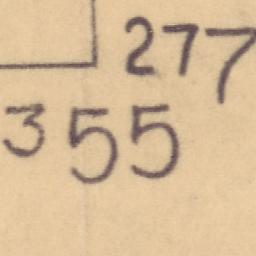 277
355